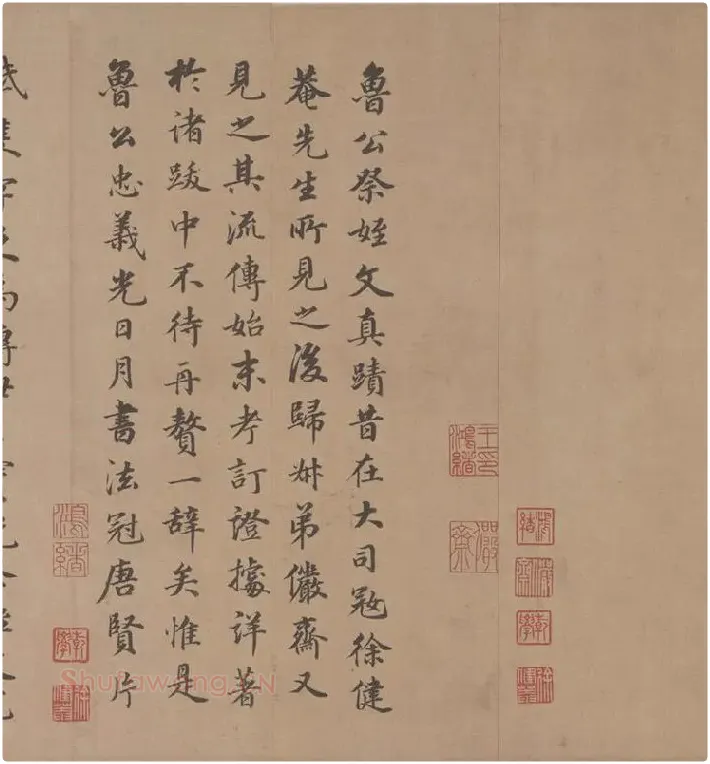 魯公祭姪文真蹟昔在大司寇徐健
菴先生所見之後歸叔弟儼齋又
見之其流傳始末考訂證據詳著
於諸跋中不待再贅一辭矣惟是
魯公忠義光日月書法冠唐賢片
王印鴻緒
儼齋
鴻緒
Shufawang.CN